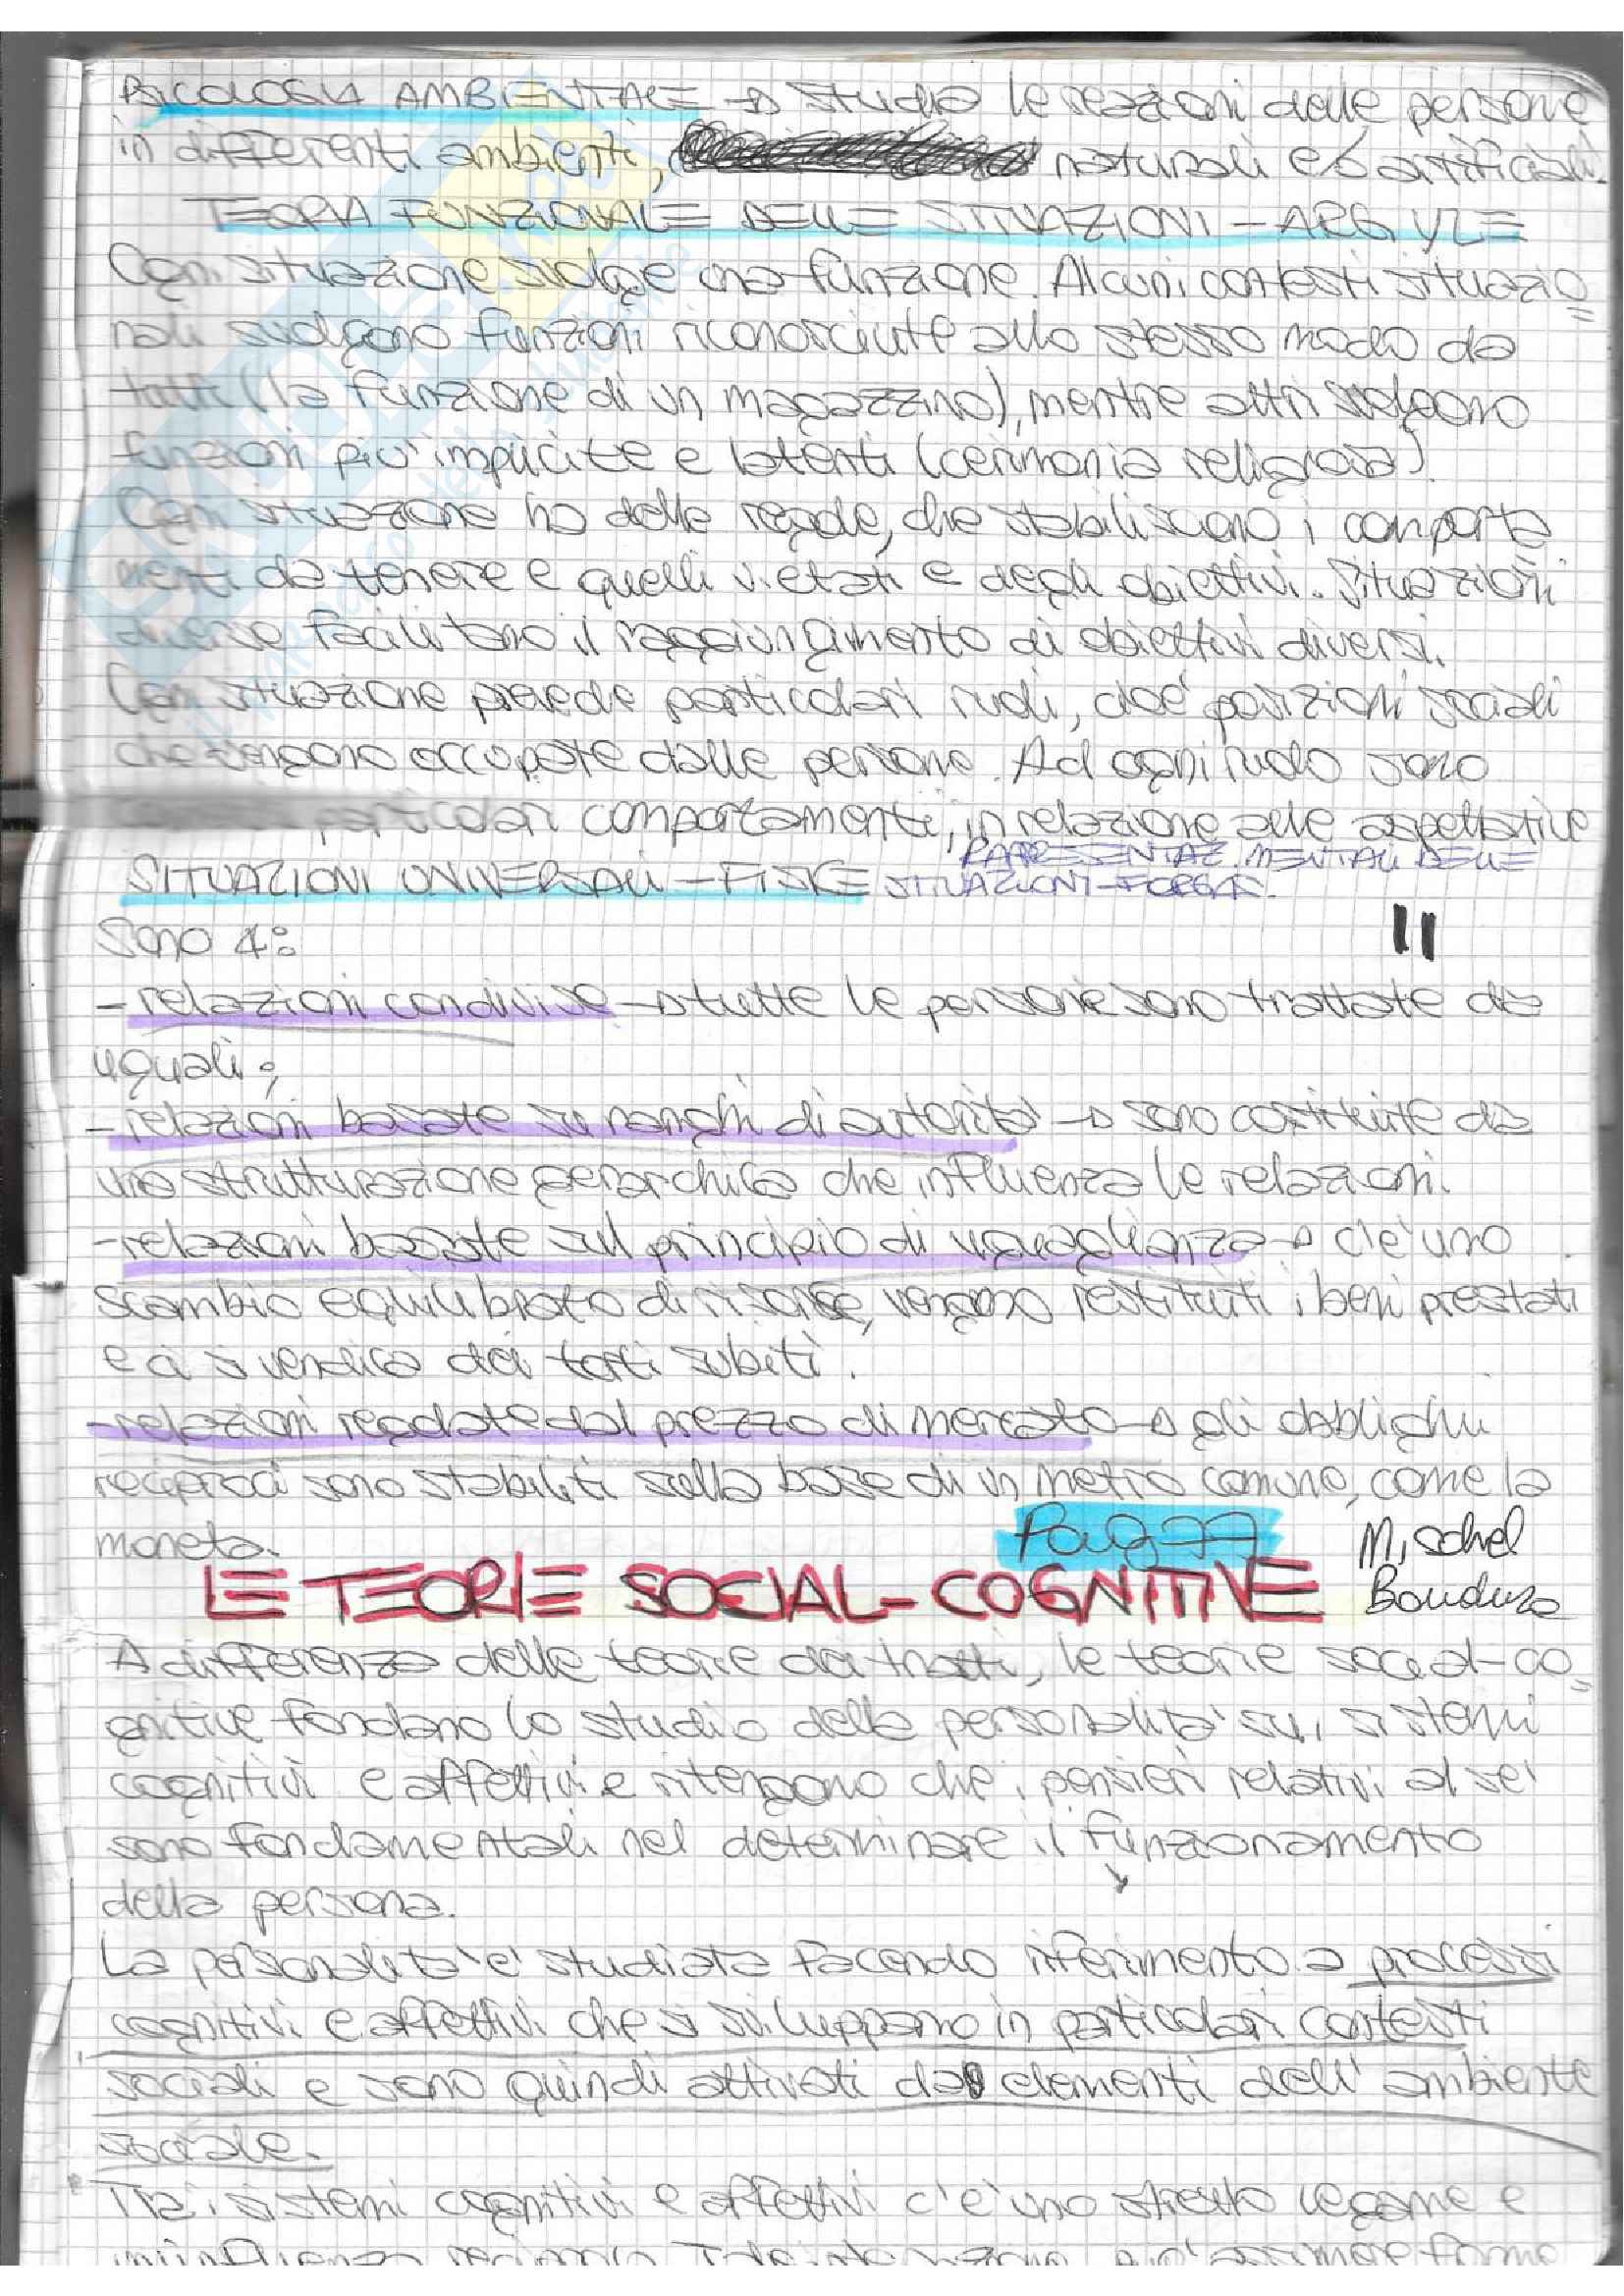 PSICOLOGIA AMBIENTALE → studia le reazioni delle persone
in differenti ambienti, naturali e/o artificiali.
TEORIA FUNZIONALE DELLE SITUAZIONI - ARGYLE
Ogni situazione svolge una funzione. Alcuni contesti situazio=
nali svolgono funzioni riconosciute allo stesso modo da
tutti (la funzione di un magazzino), mentre altri svolgono
funzioni più implicite e latenti (cerimonia religiosa).
Ogni situazione ha delle regole, che stabiliscono i comporta
menti da tenere e quelli vietati e degli obiettivi. Situazioni
diverse facilitano il raggiungimento di obiettivi diversi.
Ogni situazione prevede particolari ruoli, cioè posizioni sociali
che vengono occupate dalle persone. Ad ogni ruolo sono
particolari comportamenti, in relazione alle aspettative
RAPPRESENTAZ. MENTALI DELLE
SITUAZIONI UNIVERSALI - FISKE SITUAZIONI - FORGAS.
Sono 4:
11
- relazioni condivise → tutte le persone sono trattate da
uguali;
- relazioni basate su ranghi di autorità → sono costituite da
una strutturazione gerarchica che influenza le relazioni.
- relazioni basate sul principio di uguaglianza → c'è uno
scambio equilibrato di risorse, vengono restituiti i beni prestati
e ci si vendica dei torti subiti.
- relazioni regolate dal prezzo di mercato → gli obblighi
reciproci sono stabiliti sulla base di un metro comune, come la
moneta.
Pag 77
Mischel
LE TEORIE SOCIAL-COGNITIVE
Bandura
A differenza delle teorie dei tratti, le teorie social-co=
gnitive fondano lo studio della personalità sui sistemi
cognitivi e affettivi e ritengono che i pensieri relativi al sé
sono fondamentali nel determinare il funzionamento
della persona.
La personalità è studiata facendo riferimento a processi
cognitivi e affettivi che si sviluppano in particolari contesti
sociali e sono quindi attivati da elementi dell'ambiente
sociale.
Tra i sistemi cognitivi e affettivi c'è uno stretto legame e